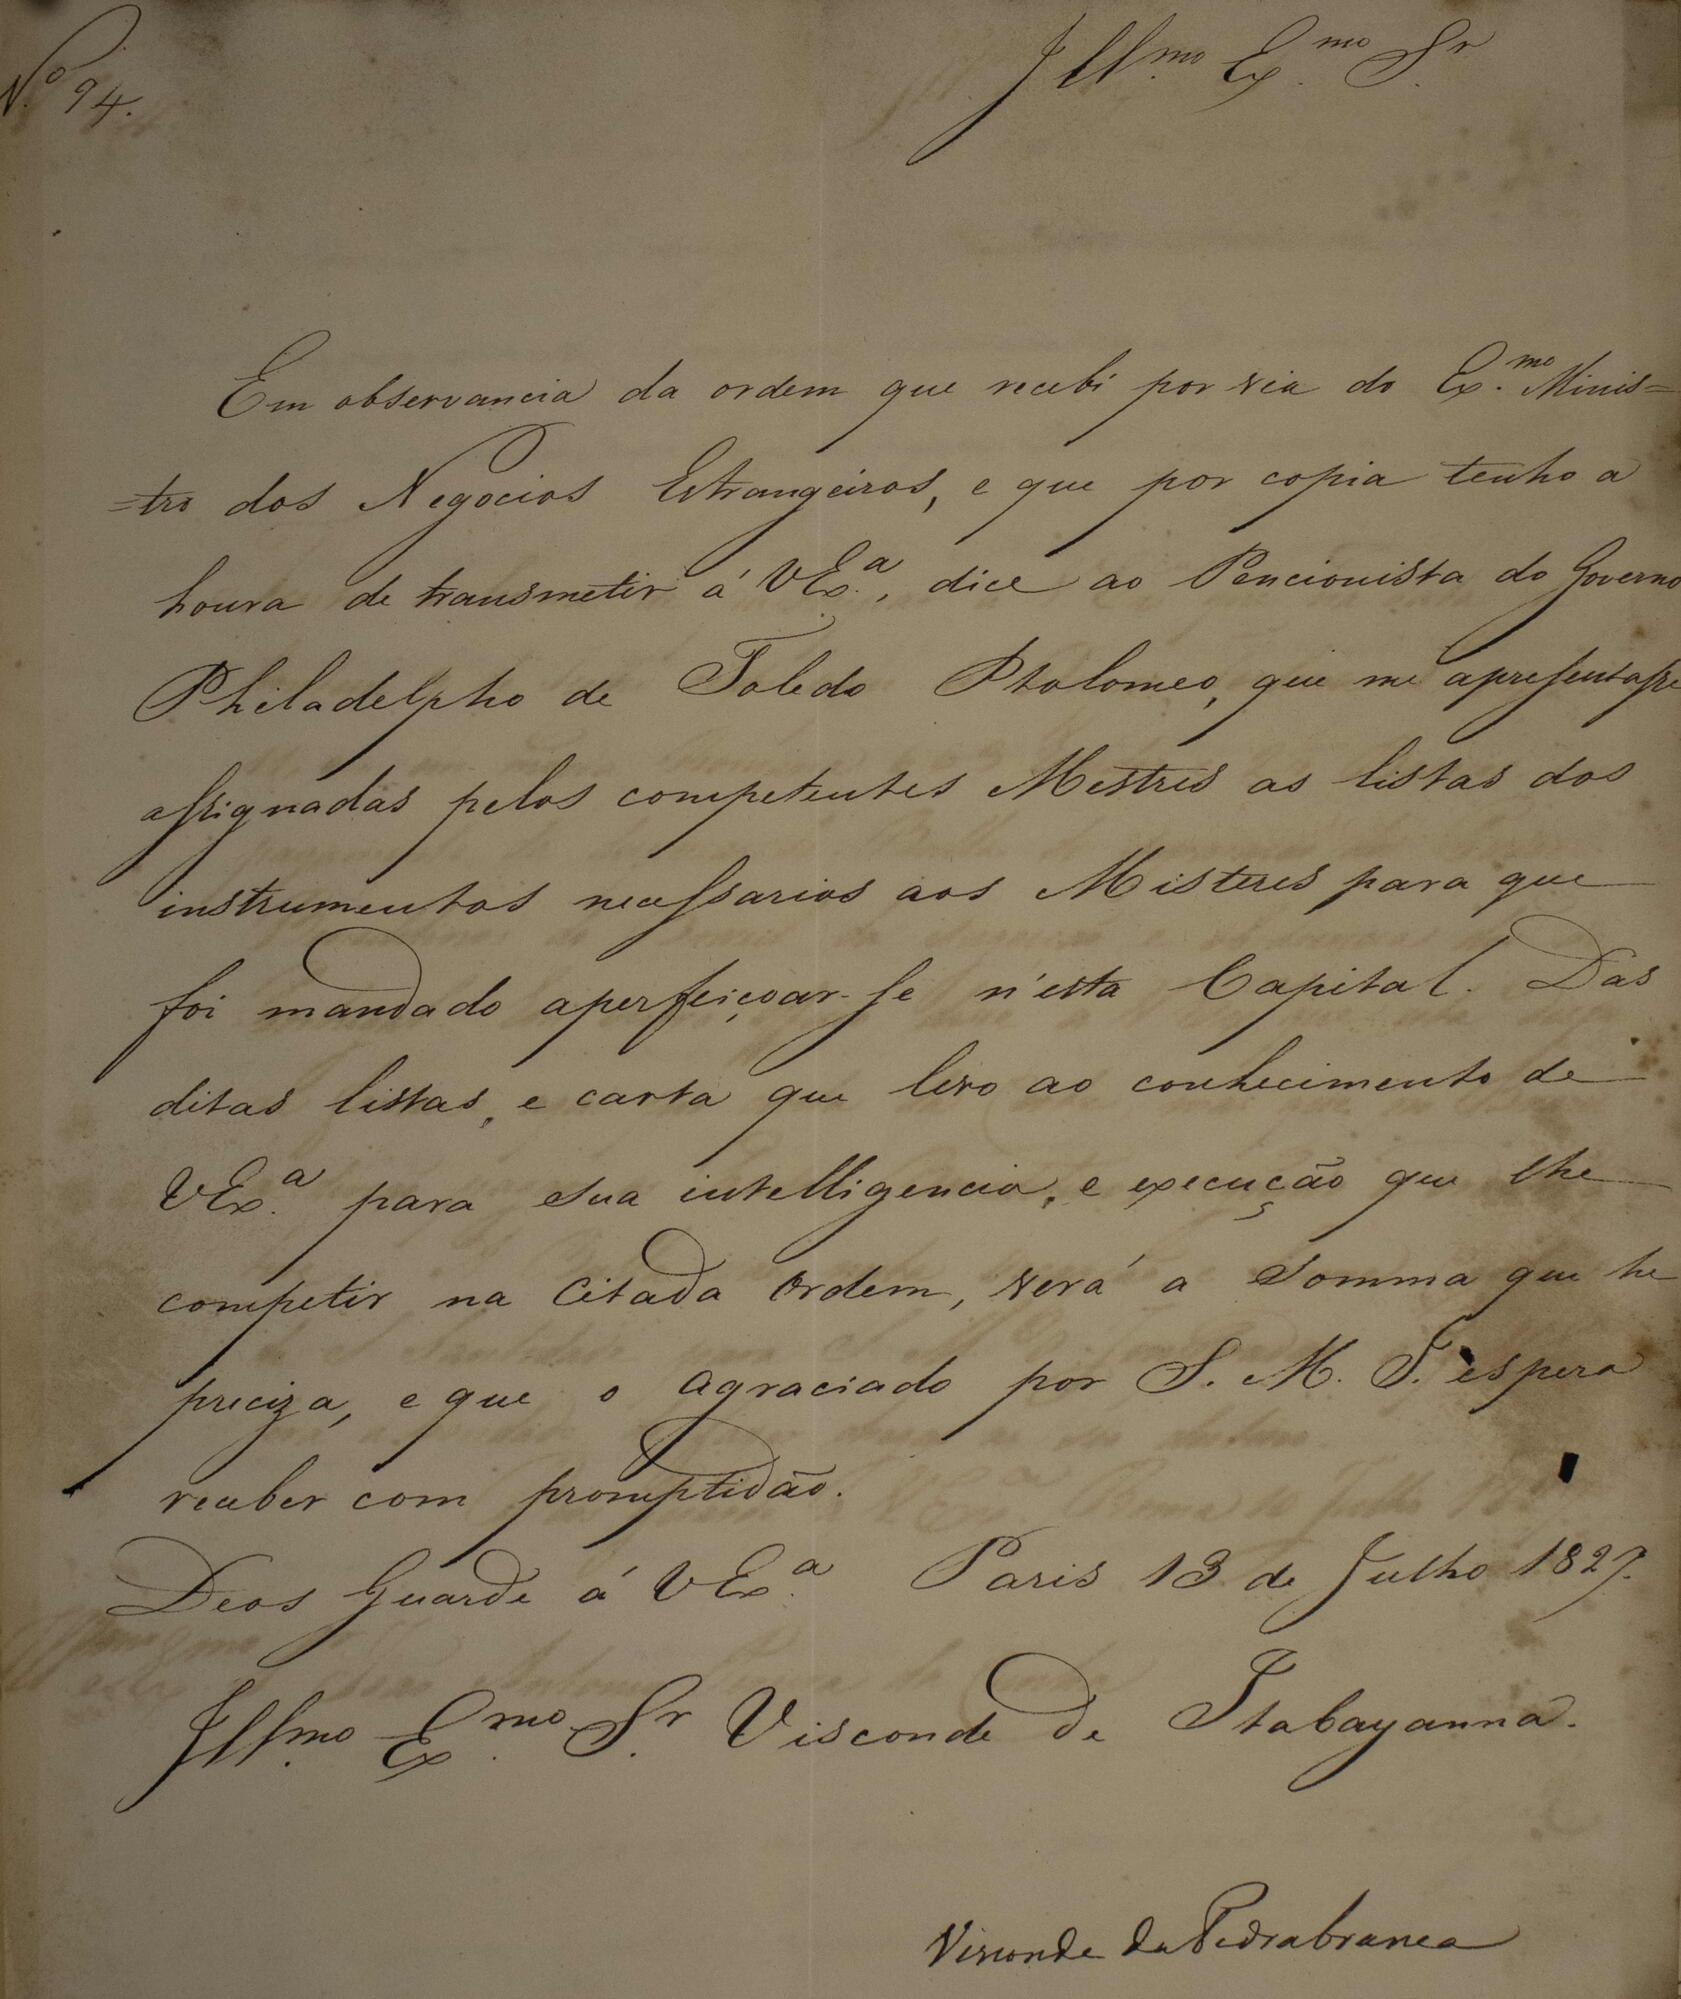 N.º 94.
Ill.mo Ex.mo Sr.
Em observancia da ordem que recebi por via do Ex.mo Minis=
=tro dos Negocios Estrangeiros, e que por copia tenho a
honra de transmetir á VEx.a, dice ao Pencionista do Governo
Philadelpho de Toledo Ptolomeo, que me apresentasse
assignadas pelos competentes Mestres as listas dos
instrumentos necessarios aos Misteres para que
foi mandado aperfeiçoar-se n'esta Capital. Das
ditas listas, e carta que levo ao conhecimento de
VEx.a para sua intelligencia, e execução que lhe
competir na Citada Ordem, verá a Somma que he
preciza, e que o agraciado por S. M. I. espera
receber com promptidão.
Deos Guarde á VEx.a Paris 13 de Julho 1827.
Ill.mo Ex.mo Sr. Visconde de Itabayanna.
Visconde da Pedrabranca